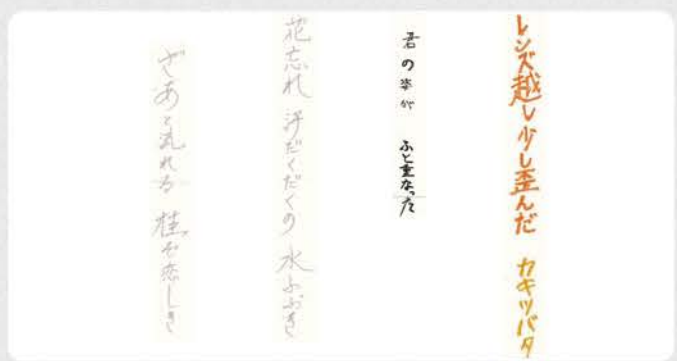 レンズ越し少し歪んだ カキツバタ
君の姿が ふと重なった
花忘れ 汗だくだくの 水ふぶき
ざあと流れる 桂ぞ恋しき